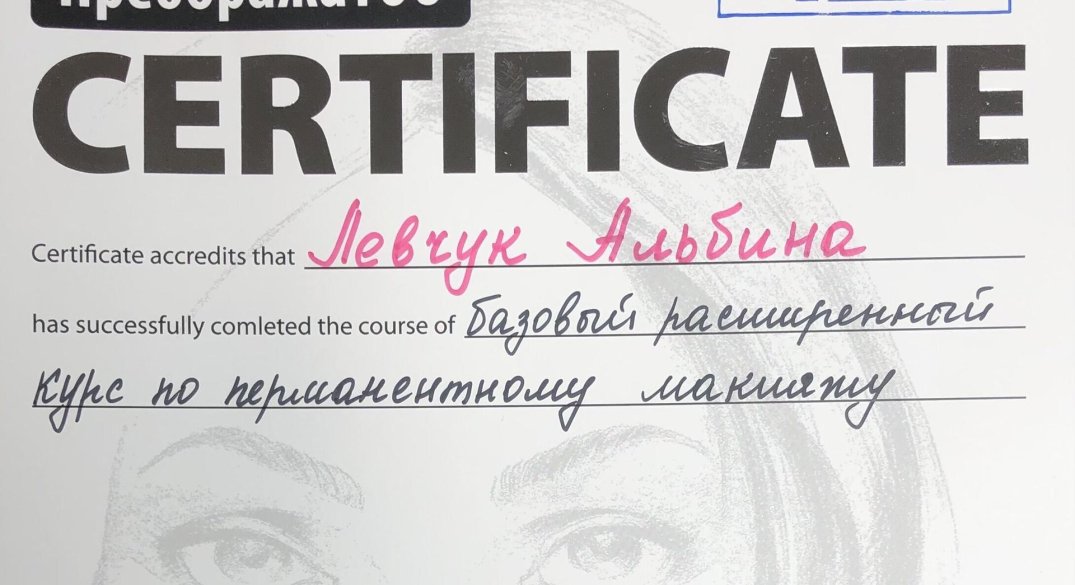 CERTIFICATE
Certificate accredits that Левчук Альбина
has successfully comleted the course of базовый расширенный
курс по перманентному макияжу